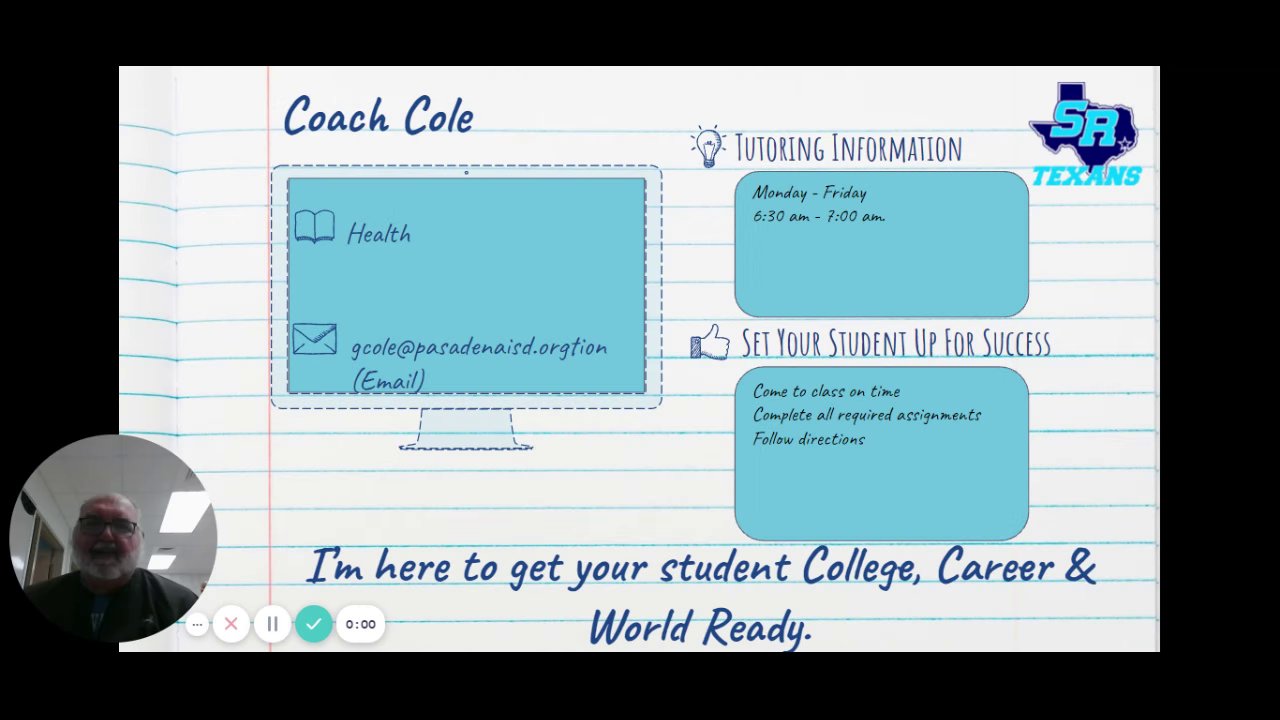 Coach Cole
Health
gcole@pasadenaisd.orgtion
(Email)
SR
TEXANS
Tutoring Information
Monday - Friday
6:30 am - 7:00 am.
Set Your Student Up For Success
Come to class on time
Complete all required assignments
Follow directions
I'm here to get your student College, Career &
World Ready.
0:00